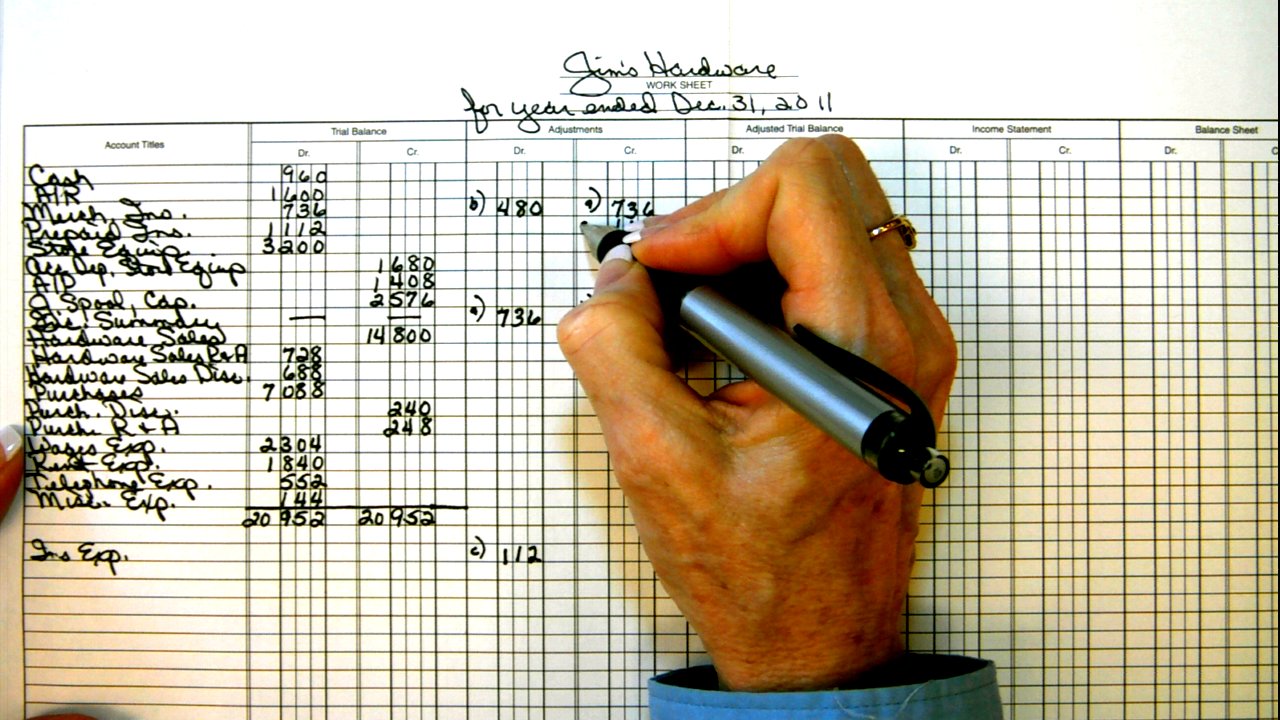 Jim's Hardware
WORK SHEET
for year ended Dec. 31, 2011
Account Titles Trial Balance Adjustments Adjusted Trial Balance Income Statement Balance Sheet
Dr. Cr. Dr. Cr. Dr. Dr. Cr. Dr. C
Cash 960
A/R 1600
Merch, Ins. 736 b) 480 a) 736
Prepaid Ins. 1112
Store Equip. 3200
Acc Dep, Store Equip 1680
A/P 1408
O. Spool, Cap. 2576
Inc. Summary — — a) 736
Hardware Sales 14800
Hardware Sales R&A 728
Hardware Sales Disc. 688
Purchases 7088
Purch. Disc. 240
Purch. R & A 248
Wages Exp. 2304
Rent Exp. 1840
Telephone Exp. 552
Misc. Exp. 144
20952 20952
Ins Exp. c) 112